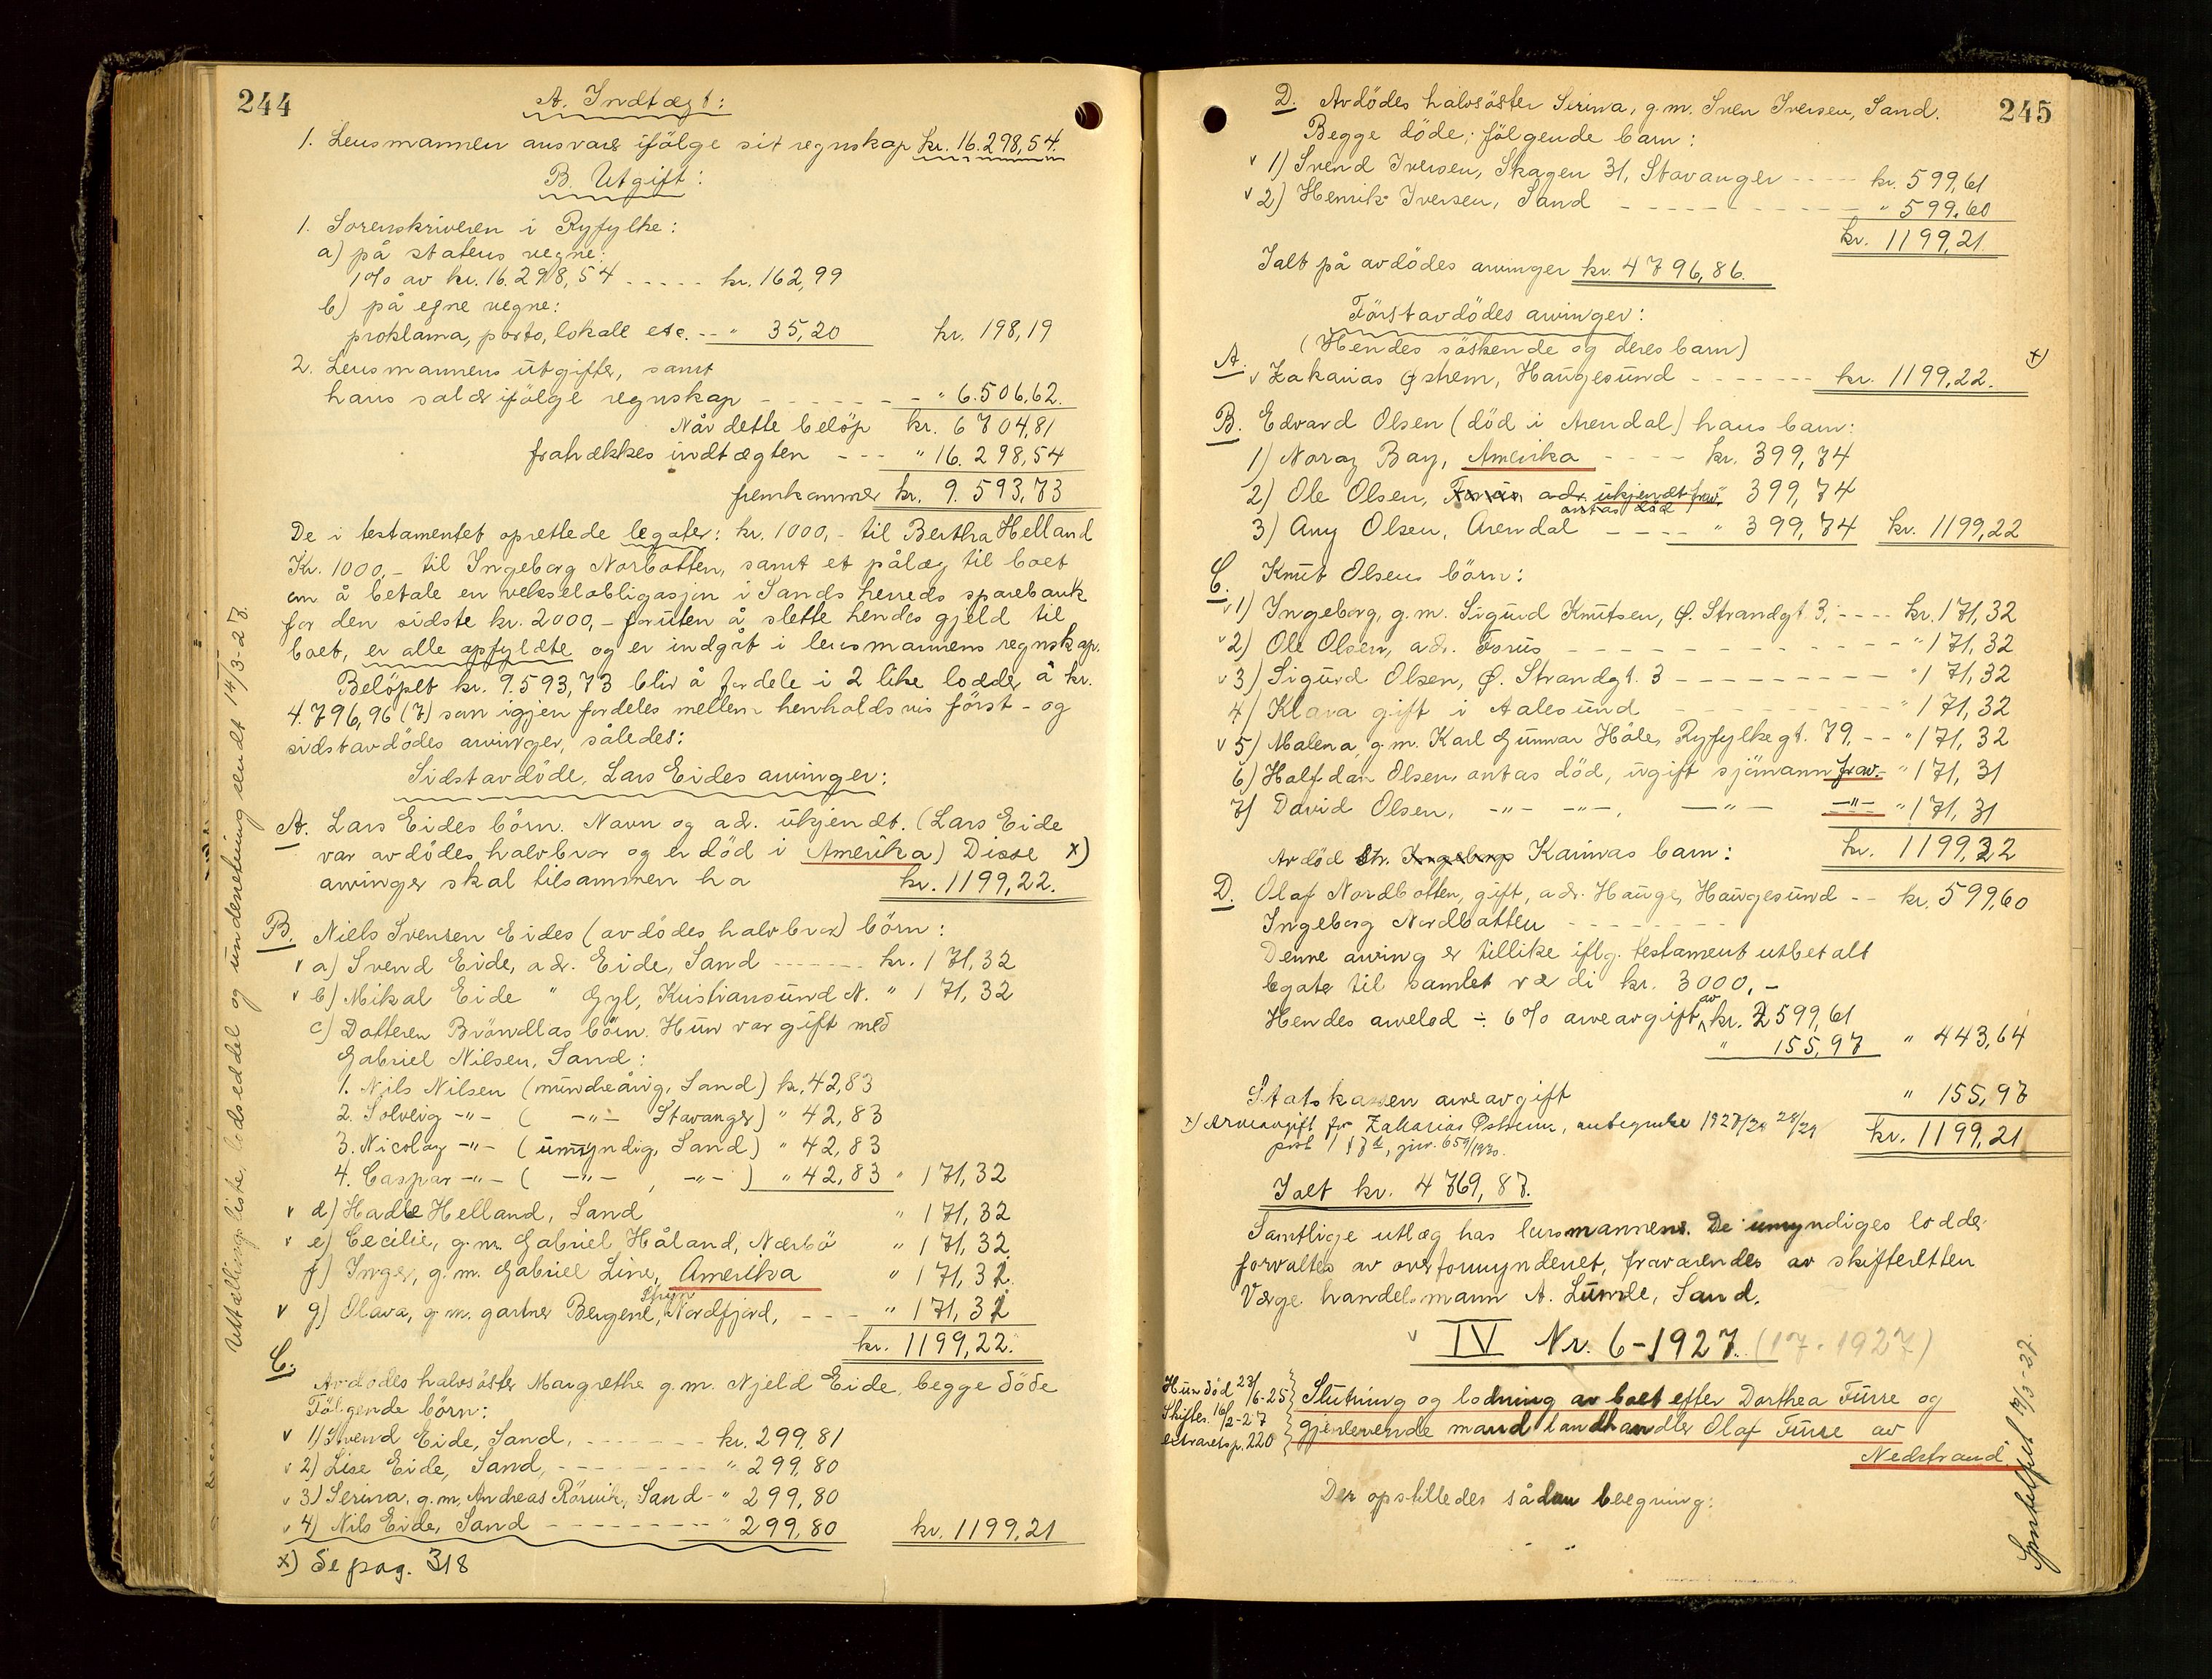 244
A. Indtægt:
1. Lensmannen ansvarer ifölge sit regnskap kr. 16.298,54.
B. Utgift:
1. Sorenskriveren i Ryfylke:
a) på statens vegne:
1% av kr. 16.298,54 ..... kr. 162,99
b) på egne vegne:
proklama, porto, lokale etc. -- " 35,20 kr. 198,19
2. Lensmannens utgifter, samt
hans salær ifölge regnskap - - - - - - " 6.506,62.
Når dette belöp kr. 6704,81
fratrækkes indtægten - - - " 16.298,54
fremkommer kr. 9.593,73
De i testamentet oprettede legater: kr. 1000,- til Bertha Helland
Kr. 1000,- til Ingeborg Norbotten, samt et pålæg til boet
om å betale en vekselobligasjon i Sands herreds sparebank
for den sidste kr. 2000,- foruten å slette hendes gjeld til
boet, er alle opfyldte og er indgåt i lensmannens regnskap.
Belöpet kr. 9.593,73 blir å fordele i 2 like lodder à kr.
4.796,96 (7) som igjen fordeles mellem henholdsvis först- og
sidstavdödes arvinger, således:
Sidstavdöde, Lars Eides arvinger:
A. Lars Eides börn. Navn og adr. ukjendt. (Lars Eide
var avdödes halvbror og er död i Amerika) Disse x)
arvinger skal tilsammen ha kr. 1199,22.
B. Niels Svensen Eides (avdödes halvbror) börn:
v a) Svend Eide, adr. Eide, Sand ------- kr. 171,32
v b) Mikal Eide " Gyl, Kristiansund N. " 171,32
c) Datteren Bröndlas börn. Hun var gift med
Gabriel Nilsen, Sand:
1. Nils Nilsen (mindreårig, Sand) kr. 42,83
2. Solveig -"- ( -"- Stavanger) " 42,83
3. Nicolay -"- (umyndig, Sand) " 42,83
4. Caspar -"- ( -"- , -"- ) " 42,83 " 171,32
v d) Hadle Helland, Sand " 171,32
v e) Cecilie, g.m. Gabriel Håland, Nærbö " 171,32
f) Inger, g.m. Gabriel Line, Amerika " 171,31.
Stryn
v g) Olava, g.m. gartner Bergene, Nordfjord, - - - " 171,31
kr. 1199,22.
C.
Avdödes halvsöster Margrethe g.m. Njeld Eide, begge döde
Fölgende börn:
v 1) Svend Eide, Sand, ------- kr. 299,81
v 2) Lise Eide, Sand, -------- " 299,80
v 3) Serina, g.m. Andreas Rörvik, Sand - " 299,80
v 4) Nils Eide, Sand -------- " 299,80 kr. 1199,21
x) Se pag. 318
Uttællingsliste, lodseddel og underretning sendt 14/3-27.
245
D. Avdödes halvsöster Serina, g.m. Sven Iversen, Sand.
Begge döde; fölgende barn:
v 1) Svend Iversen, Skagen 31, Stavanger ---- kr. 599,61
v 2) Henrik Iversen, Sand - - - - - - - " 599,60
kr. 1199,21
Ialt på avdödes arvinger kr. 4796,86.
Förstavdödes arvinger:
(Hendes söskende og deres barn)
x)
A. v Zakarias Östrem, Haugesund ------- kr. 1199,22.
B. Edvard Olsen (död i Arendal) hans barn:
1) Noray Bay, Amerika ---- kr. 399,74
2) Ole Olsen, adr. ukjendt frav. " 399,74
antas död
3) Any Olsen, Arendal ---- " 399,74 kr. 1199,22
C. Knut Olsens börn:
v 1) Ingeborg, g.m. Sigurd Knutsen, Ø. Strandgt. 3, ---- kr. 171,32
v 2) Ole Olsen, adr. Forus - - - - - - - - " 171,32
v 3) Sigurd Olsen, Ø. Strandgt. 3 --------- " 171,32
4) Klara gift i Aalesund - - - - - - - - " 171,32
v 5) Malena, g.m. Karl Gunnar Höle, Ryfylkegt. 79, -- " 171,32
6) Halfdan Olsen, antas död, ugift sjömann frav. - " 171,31
7) David Olsen, -"- -"-, -"- -"- " 171,31
kr. 1199,22
Avdöd Karinas barn:
D. Olaf Nordbotten, gift, adr. Hauge, Haugesund -- kr. 599,60
Ingeborg Nordbotten - - - - - - - -
Denne arving er tillike iflg. testament utbetalt
legater til samlet værdi kr. 3000,-
Hendes arvelod ÷ 6% arveavgift av kr. 2599,61
" 155,97 " 443,64
Statskassen arveavgift " 155,97
x) Arveavgift for Zakarias Østrem, antegnelse 1927/28 28/29 kr. 1199,21
post 1 jnr. 659/1930.
Ialt kr. 4769,87.
Samtlige utlæg har lensmannen. De umyndiges lodder
forvaltes av overformynderiet, fraværendes av skifteretten
Værge handelsmann A. Lunde, Sand.
v IV Nr. 6-1927. (17-1927)
Hun död 23/6-25
Skiftes. 16/2-27
extraretsp. 220
Slutning og lodning av boet efter Dorthea Furre og
gjenlevende mand landhandler Olaf Furre av
Nedstrand.
Der opstilledes sådan beregning: